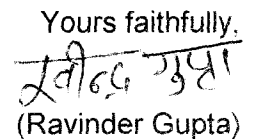 Yours faithfully,
रवीन्द्र गुप्ता
(Ravinder Gupta)